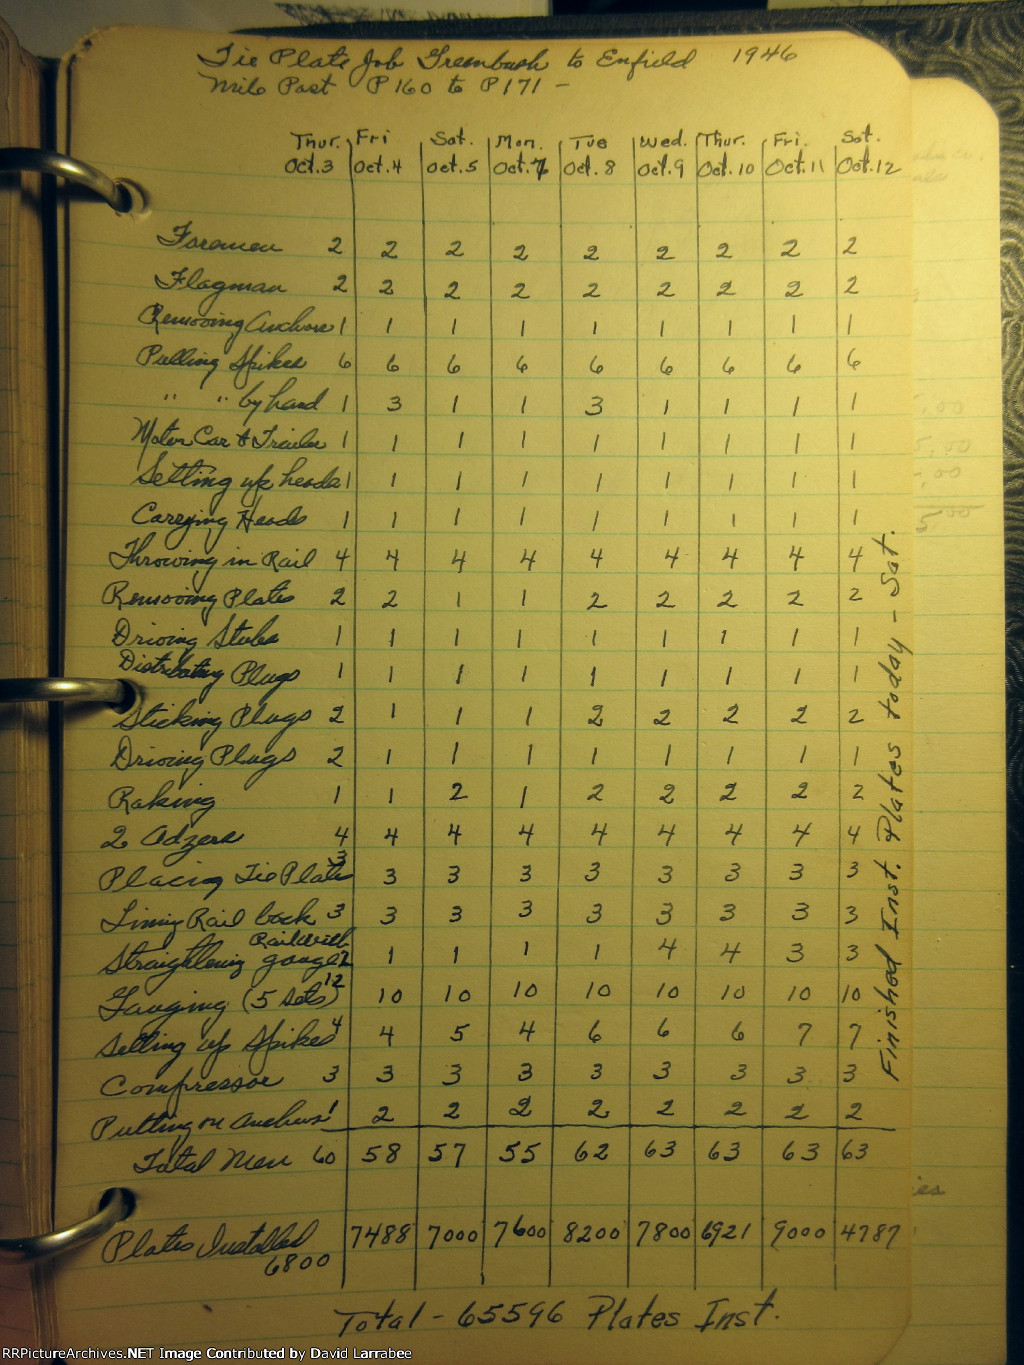 Tie Plate Job Greenbush to Enfield 1946
Mile Post P160 to P171 -
Thur. Fri Sat. Mon. Tue Wed. Thur. Fri. Sat.
Oct.3 Oct.4 Oct.5 Oct.7 Oct.8 Oct.9 Oct.10 Oct.11 Oct.12
Foremen 2 2 2 2 2 2 2 2 2
Flagman 2 2 2 2 2 2 2 2 2
Removing Anchors 1 1 1 1 1 1 1 1 1
Pulling Spikes 6 6 6 6 6 6 6 6 6
" " by hand 1 3 1 1 3 1 1 1 1
Motor Car & Trailer 1 1 1 1 1 1 1 1 1
Setting up heads 1 1 1 1 1 1 1 1 1
Carrying Heads 1 1 1 1 1 1 1 1 1
Throwing in Rail 4 4 4 4 4 4 4 4 4
Removing Plates 2 2 1 1 2 2 2 2 2
Driving Stubs 1 1 1 1 1 1 1 1 1
Distributing Plugs 1 1 1 1 1 1 1 1 1
Sticking Plugs 2 1 1 1 2 2 2 2 2
Driving Plugs 2 1 1 1 1 1 1 1 1
Raking 1 1 2 1 2 2 2 2 2
2 Adzers 4 4 4 4 4 4 4 4 4
Placing Tie Plates 3 3 3 3 3 3 3 3 3
Lining Rail back 3 3 3 3 3 3 3 3 3
Straightening Rail with gauge 2 1 1 1 1 4 4 3 3
Gauging (5 sets) 12 10 10 10 10 10 10 10 10
Setting up Spikes 4 4 5 4 6 6 6 7 7
Compressor 3 3 3 3 3 3 3 3 3
Putting on Anchors 1 2 2 2 2 2 2 2 2
Total Men 60 58 57 55 62 63 63 63 63
Plates Installed 6800 7488 7000 7600 8200 7800 6921 9000 4787
Total - 65596 Plates Inst.
Finished Inst. Plates today - Sat.
RRPictureArchives.NET Image Contributed by David Larrabee